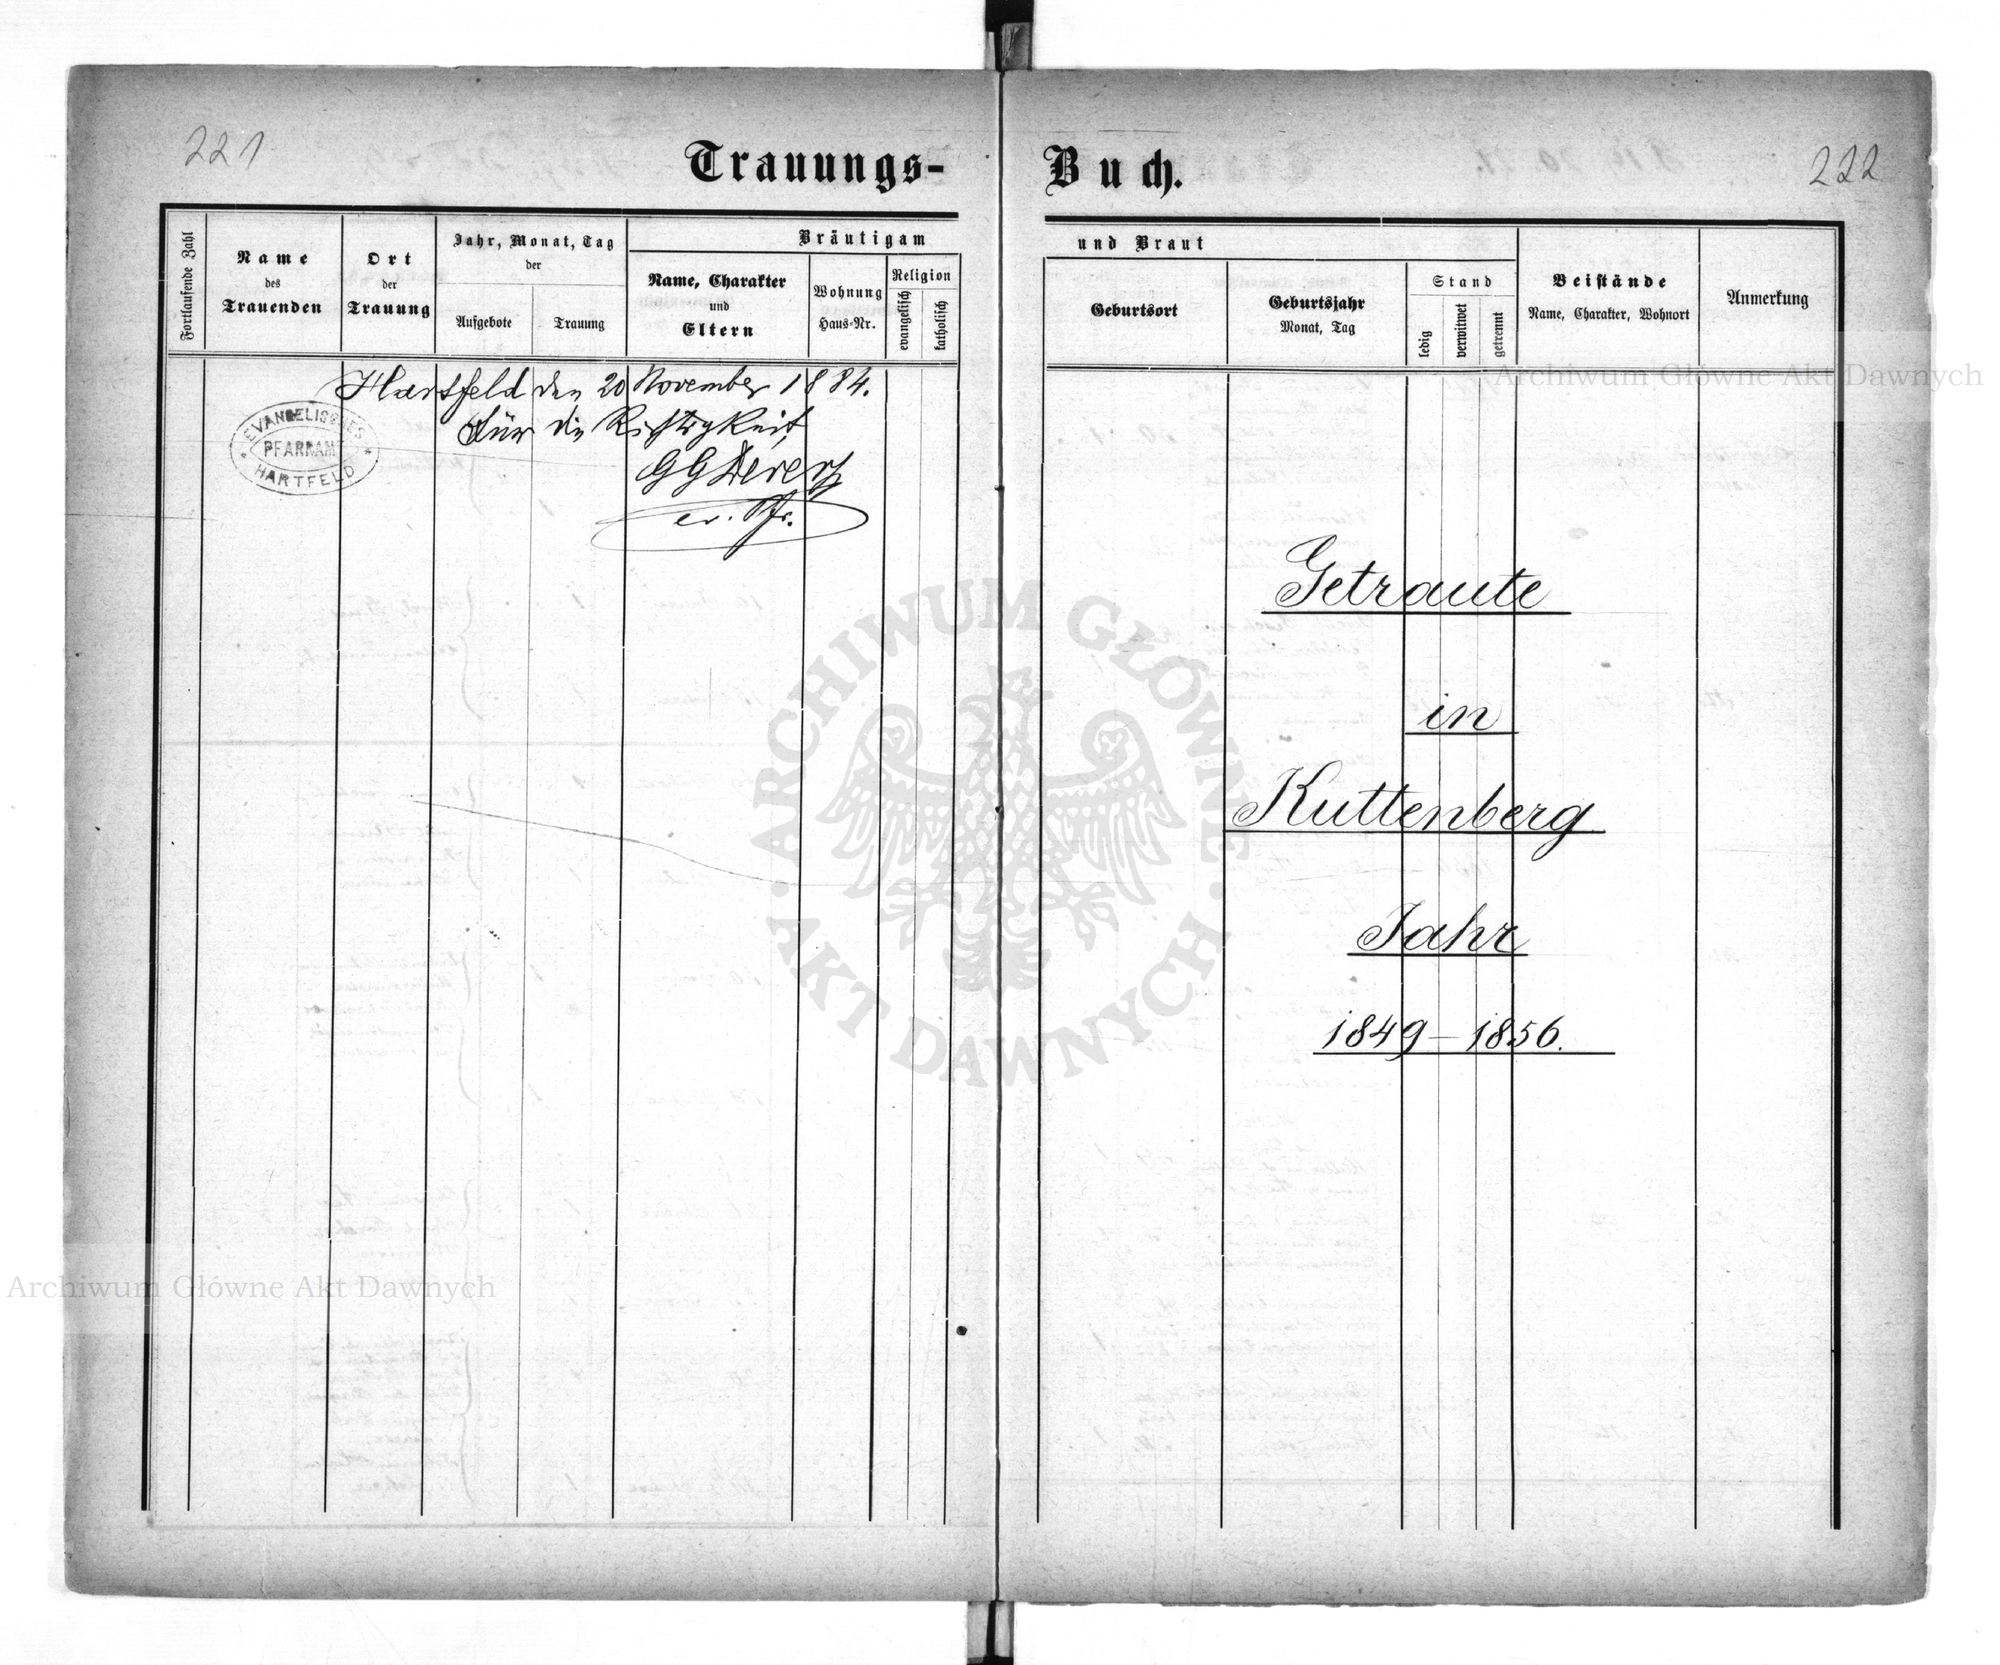 221
Trauungs-
Fortlaufende Zahl
Name
des
Trauenden
Ort
der
Trauung
Jahr, Monat, Tag
der
Aufgebote
Trauung
Bräutigam
Name, Charakter
und
Eltern
Wohnung
Haus-Nr.
Religion
evangelisch
katholisch
Hartfeld den 20 November 1884.
Für die Richtigkeit
ev. Pfr.
EVANGELISCHES
PFARRAMT
HARTFELD
222
Buch.
und Braut
Geburtsort
Geburtsjahr
Monat, Tag
Stand
ledig
verwitwet
getrennt
Beistände
Name, Charakter, Wohnort
Anmerkung
Getraute
in
Kuttenberg
Jahr
1849-1856.
Archiwum Główne Akt Dawnych
Archiwum Główne Akt Dawnych
· ARCHIWUM GŁÓWNE ·
AKT DAWNYCH